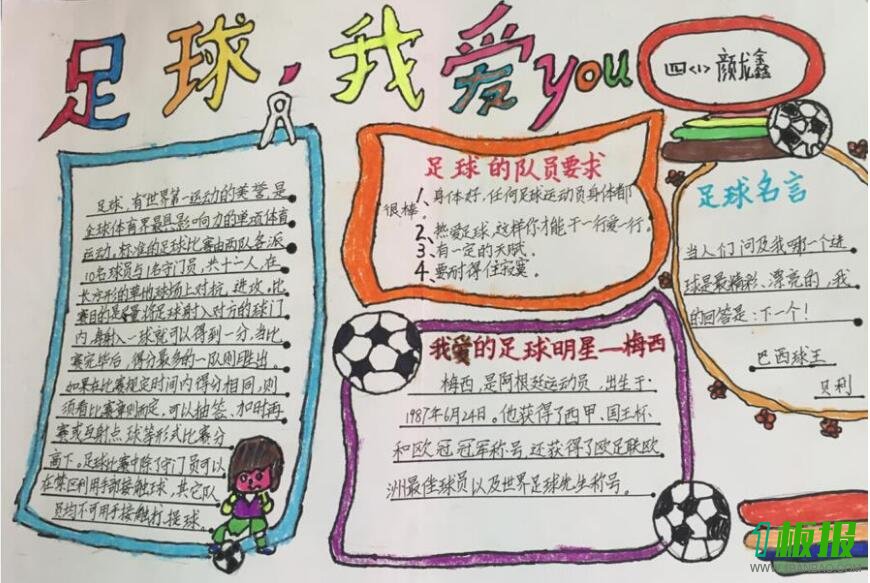 足球,我爱you
四<1>颜龙鑫
足球,有"世界第一运动"的美誉,是
全球体育界最具影响力的单项体育
运动。标准的足球比赛由两队各派
10名球员与1名守门员,共十一人,在
长方形的草地球场上对抗、进攻,比
赛目的是尽量将足球射入对方的球门
内,每射入一球就可以得到一分,当比
赛完毕后,得分最多的一队则胜出。
如果在比赛规定时间内得分相同,则
须看比赛章则而定,可以抽签、加时再
赛或互射点球等形式比赛分
高下。足球比赛中除了守门员可以
在禁区利用手部接触球,其它队
员均不可用手接触打、提球。
足球的队员要求
1、身体好,任何足球运动员身体都
很棒。
2、热爱足球,这样你才能干一行爱一行。
3、有一定的天赋。
4、要耐得住寂寞。
我爱的足球明星—梅西
梅西,是阿根廷运动员,出生于
1987年6月24日。他获得了西甲、国王杯
和欧冠冠军称号,还获得了欧足联欧
洲最佳球员以及世界足球先生称号。
足球名言
当人们问及我哪一个进
球是最精彩、漂亮的,我
的回答是:下一个!
巴西球王
贝利
1板报
WWW.1BANBAO.COM